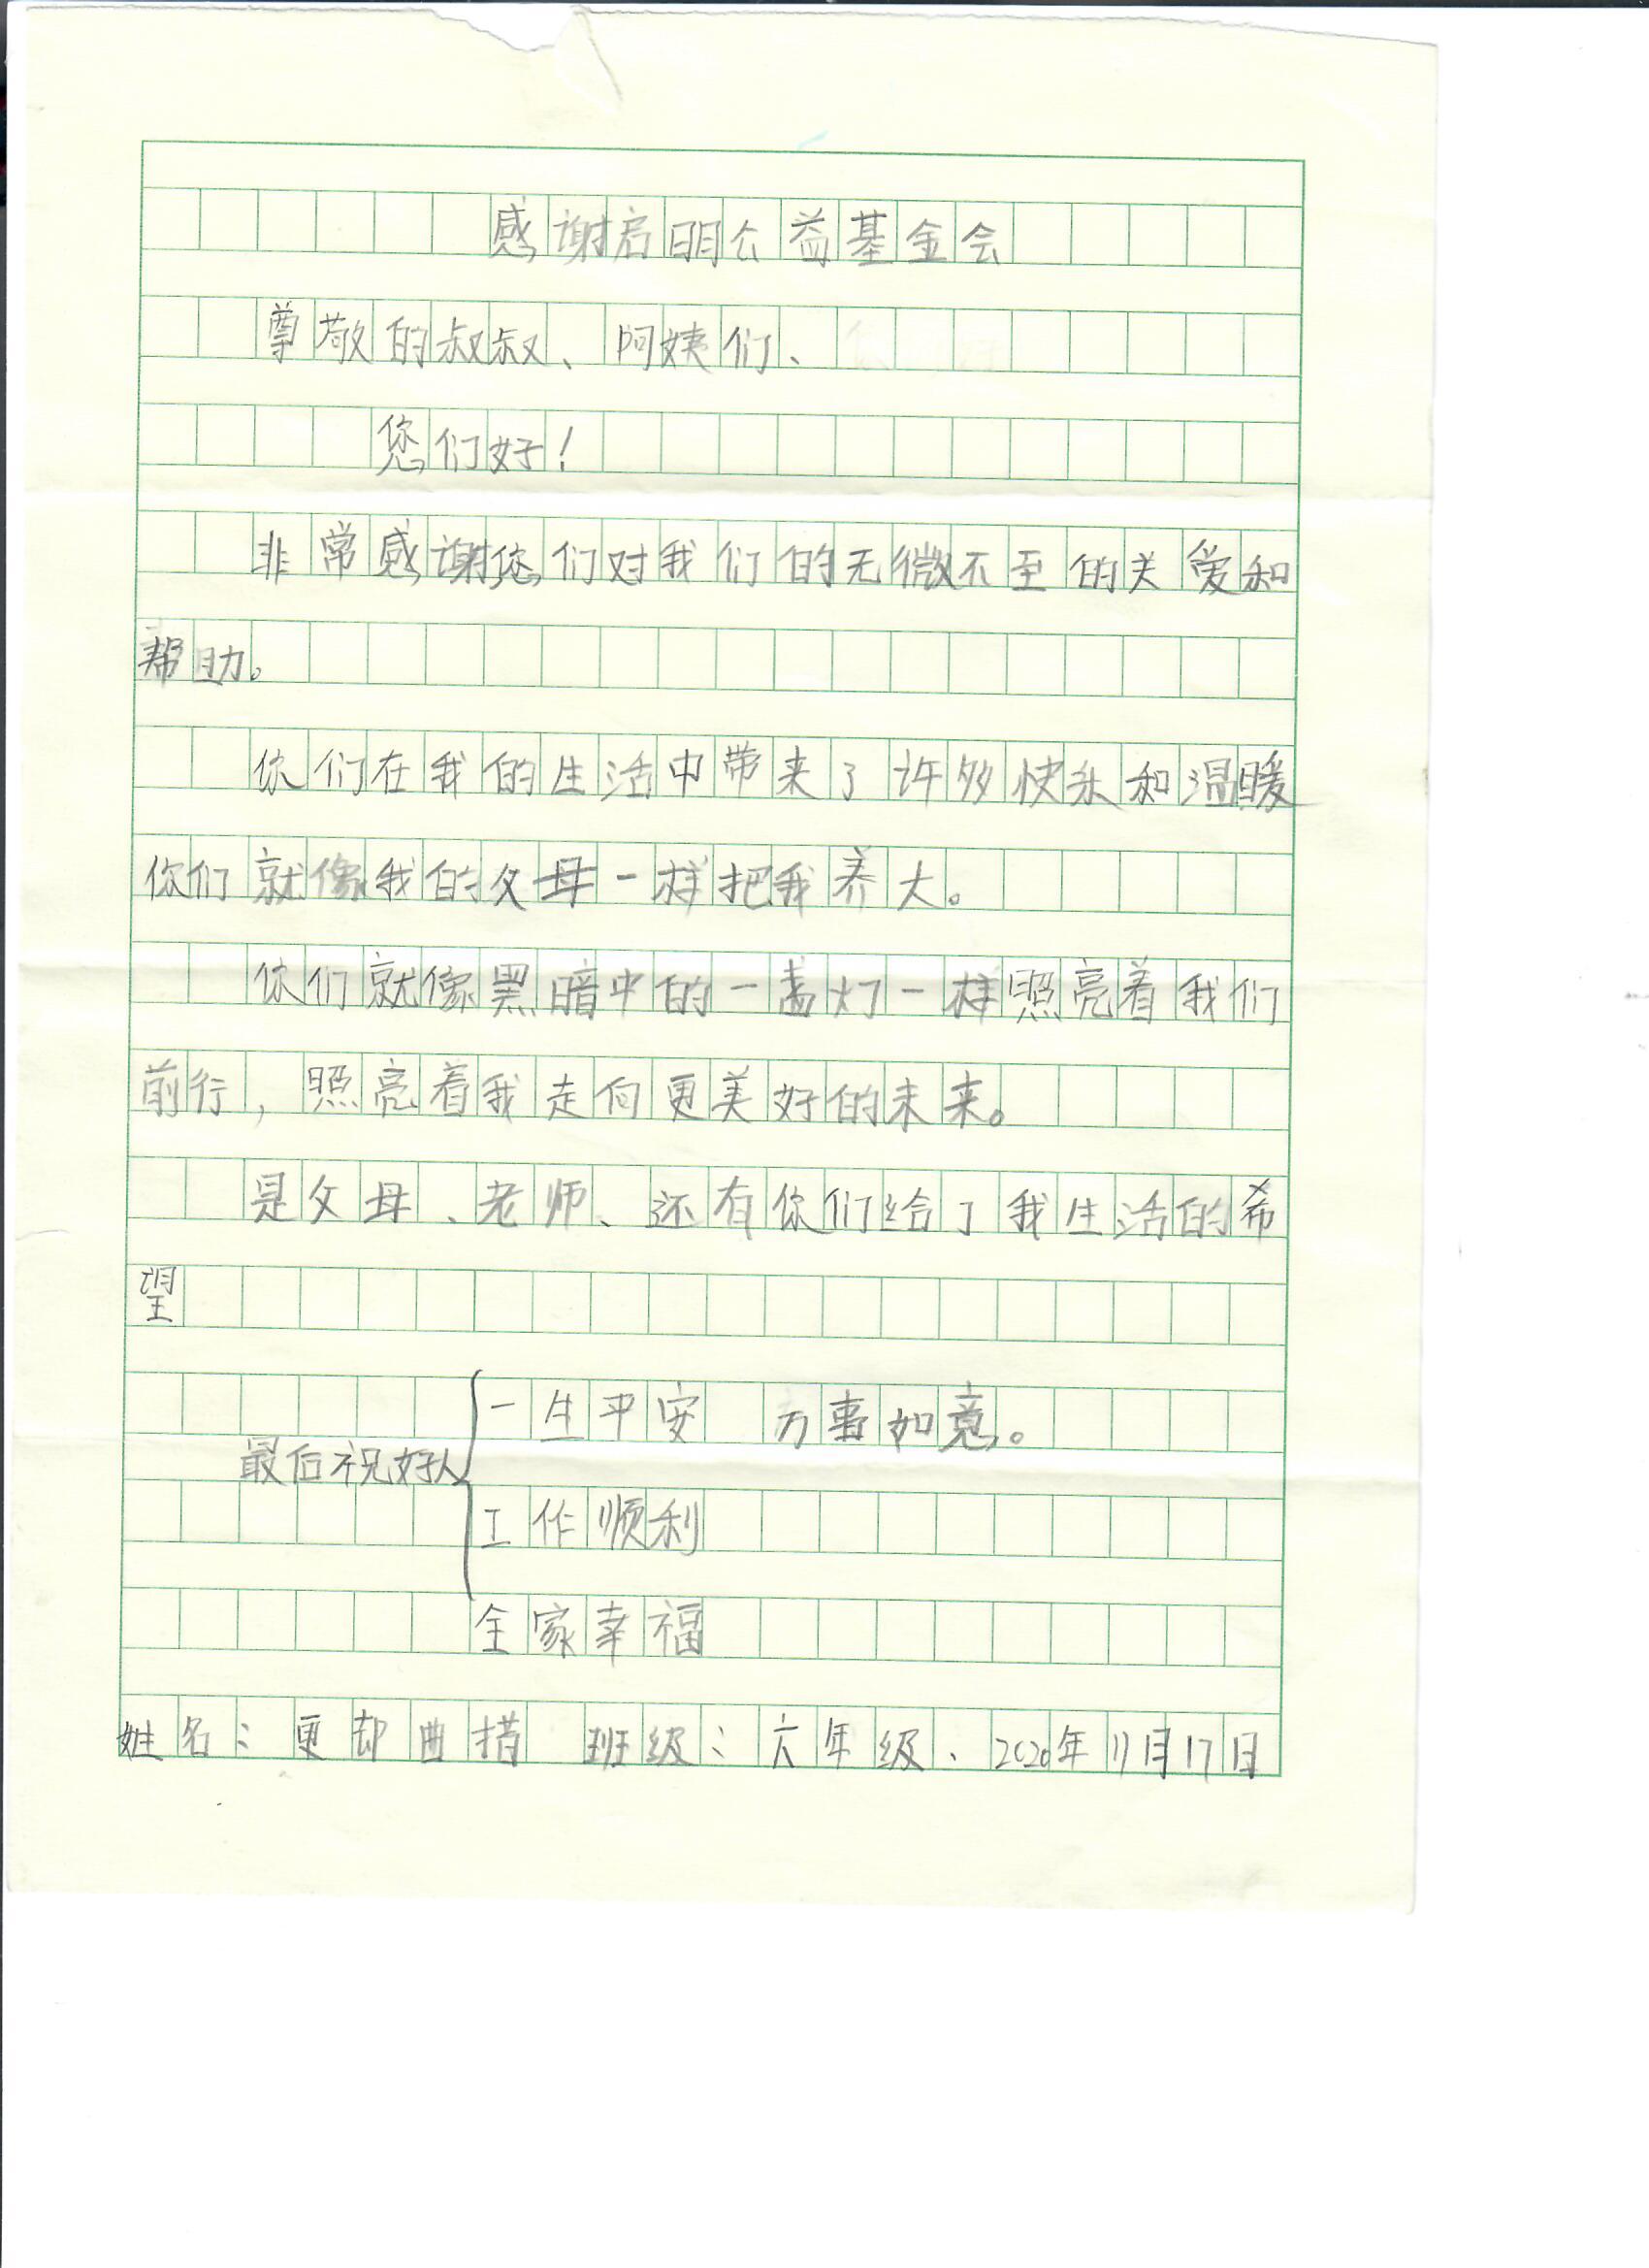 感谢启明公益基金会
尊敬的叔叔、阿姨们、
您们好！
非常感谢您们对我们的无微不至的关爱和
帮助。
你们在我的生活中带来了许多快乐和温暖
你们就像我的父母一样把我养大。
你们就像黑暗中的一盏灯一样照亮着我们
前行，照亮着我走向更美好的未来。
是父母、老师、还有你们给了我生活的希
望
一生平安 万事如意。
最后祝好人
工作顺利
全家幸福
姓名：更却曲措 班级：六年级、2020年11月17日